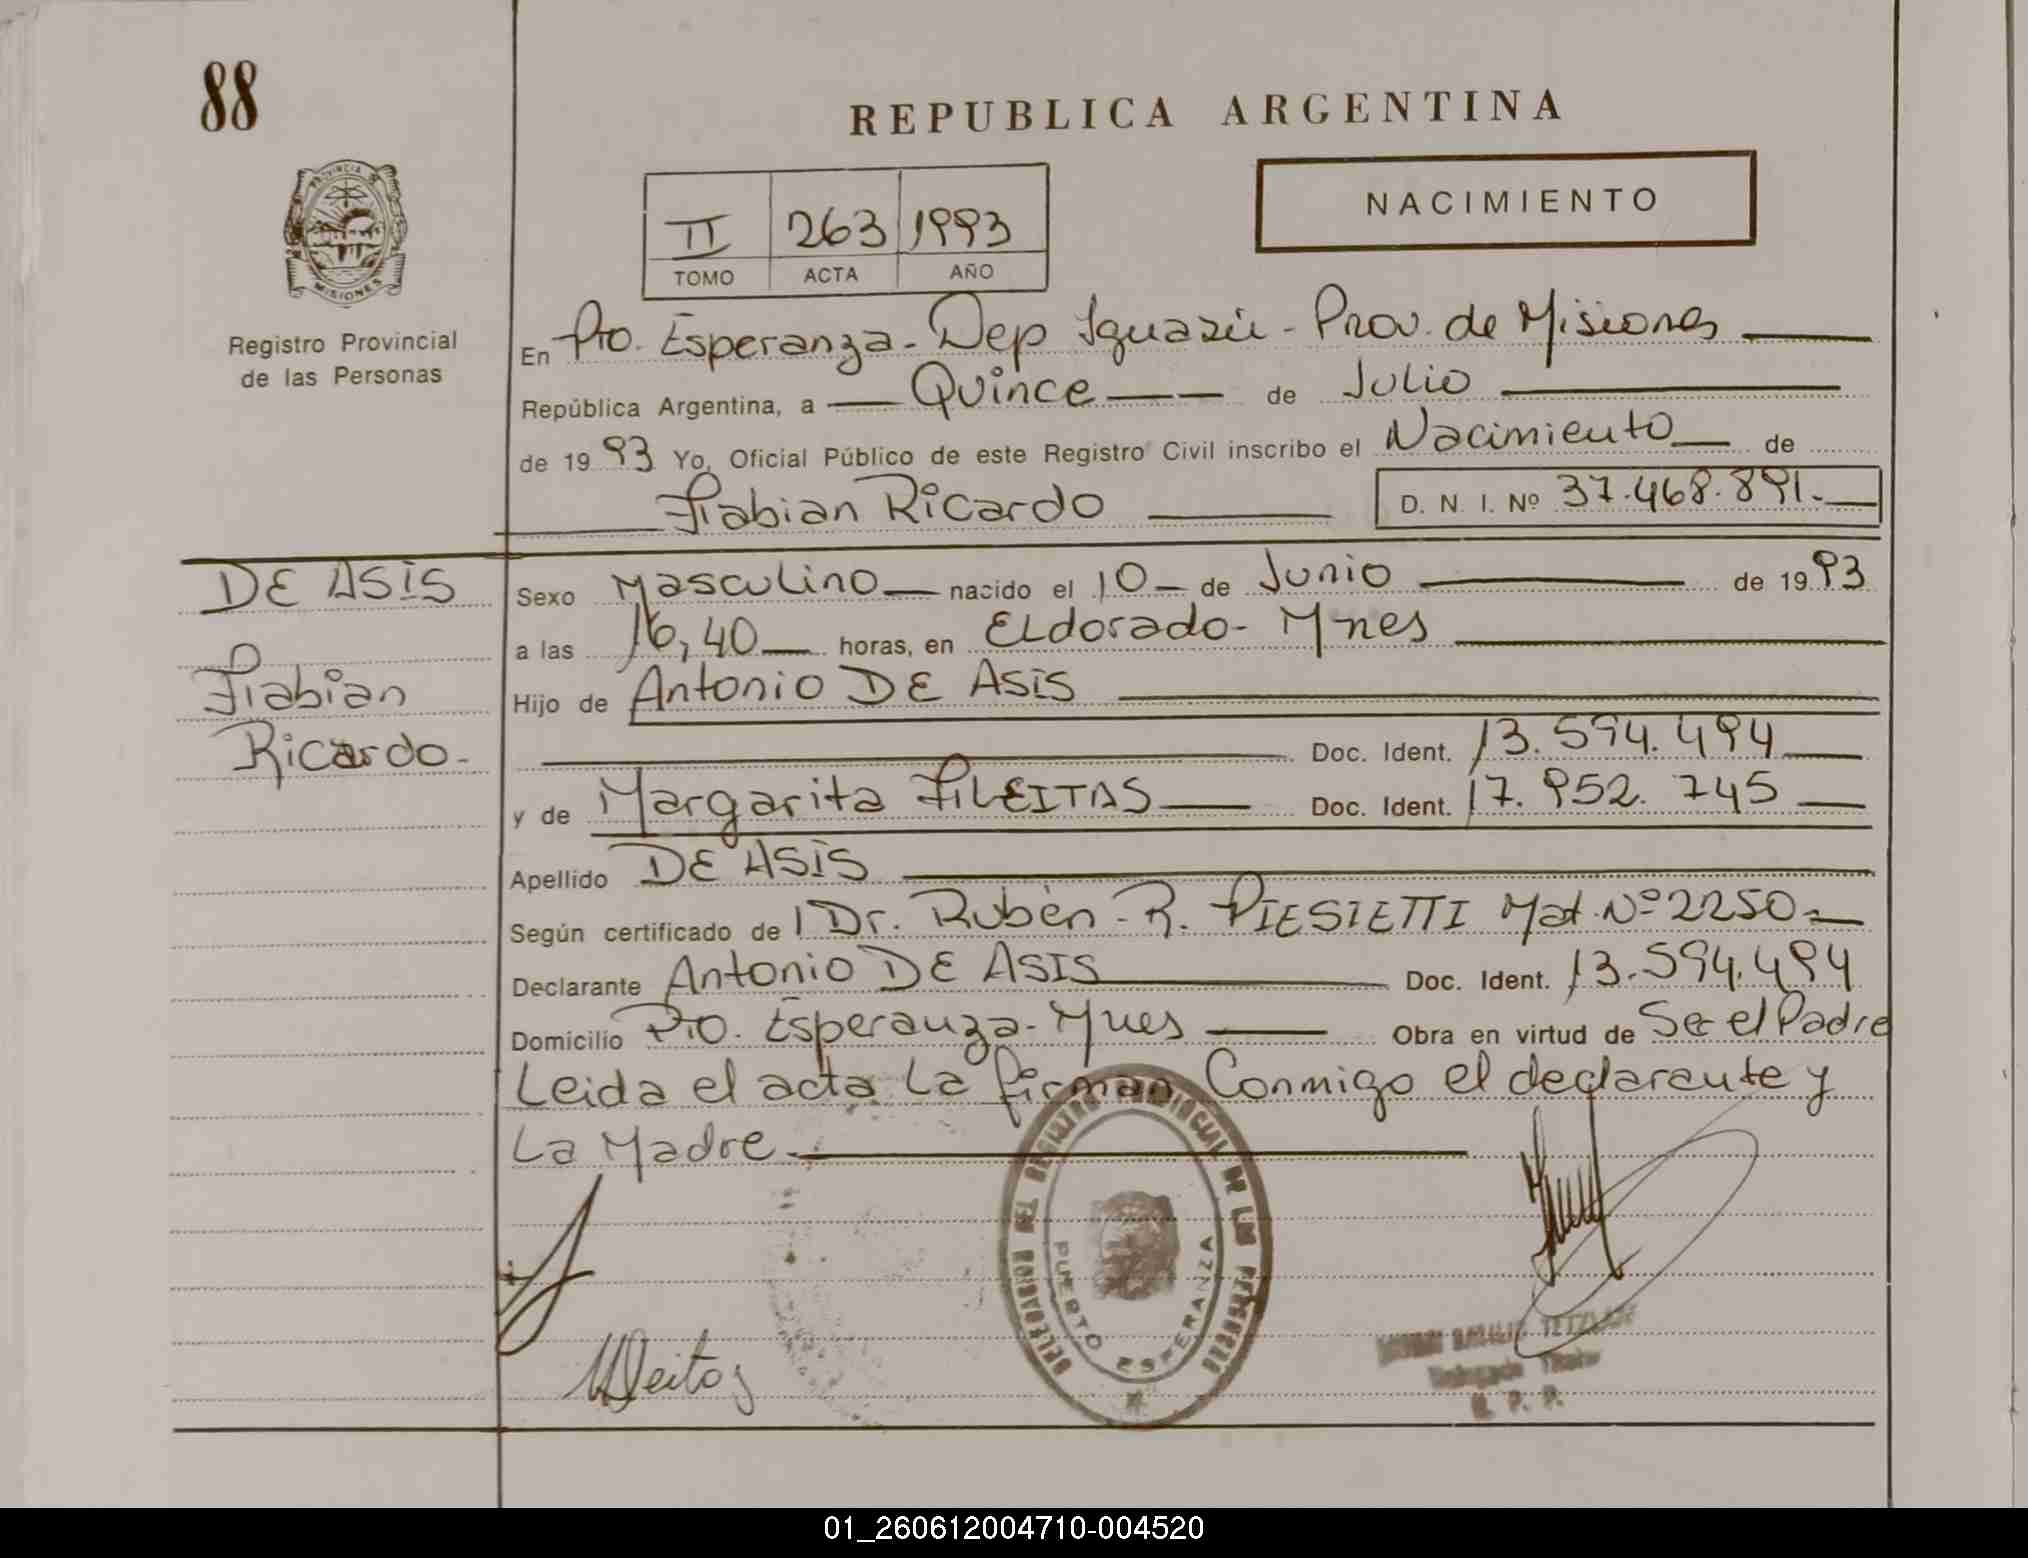 88
REPUBLICA ARGENTINA
NACIMIENTO
II 263 1993
TOMO ACTA AÑO
PROVINCIA DE
MISIONES
Registro Provincial
de las Personas
En Pto. Esperanza - Dep Iguazú - Prov. de Misiones
República Argentina, a Quince de Julio
de 1993 Yo, Oficial Público de este Registro Civil inscribo el Nacimiento de
Fabian Ricardo D. N. I. Nº 37.468.891.
DE ASIS
Fabian
Ricardo.
Sexo Masculino nacido el 10 de Junio de 1993
a las 16,40 horas, en ELdorado - Mnes
Hijo de Antonio DE ASIS
Doc. Ident. 13.594.494
y de Margarita FLEITAS Doc. Ident. 17.952.745
Apellido DE ASIS
Según certificado de l Dr. Rubén - R. PIESIETTI Mat. Nº 2250
Declarante Antonio DE ASIS Doc. Ident. 13.594.494
Domicilio Pto. Esperanza - Mnes Obra en virtud de Ser el Padre
Leida el acta La firman Conmigo el declarante y
La Madre
DELEGACION DEL REGISTRO PROVINCIAL DE LAS PERSONAS
PUERTO ESPERANZA
Delegado Titular
R. P. P.
01_260612004710-004520